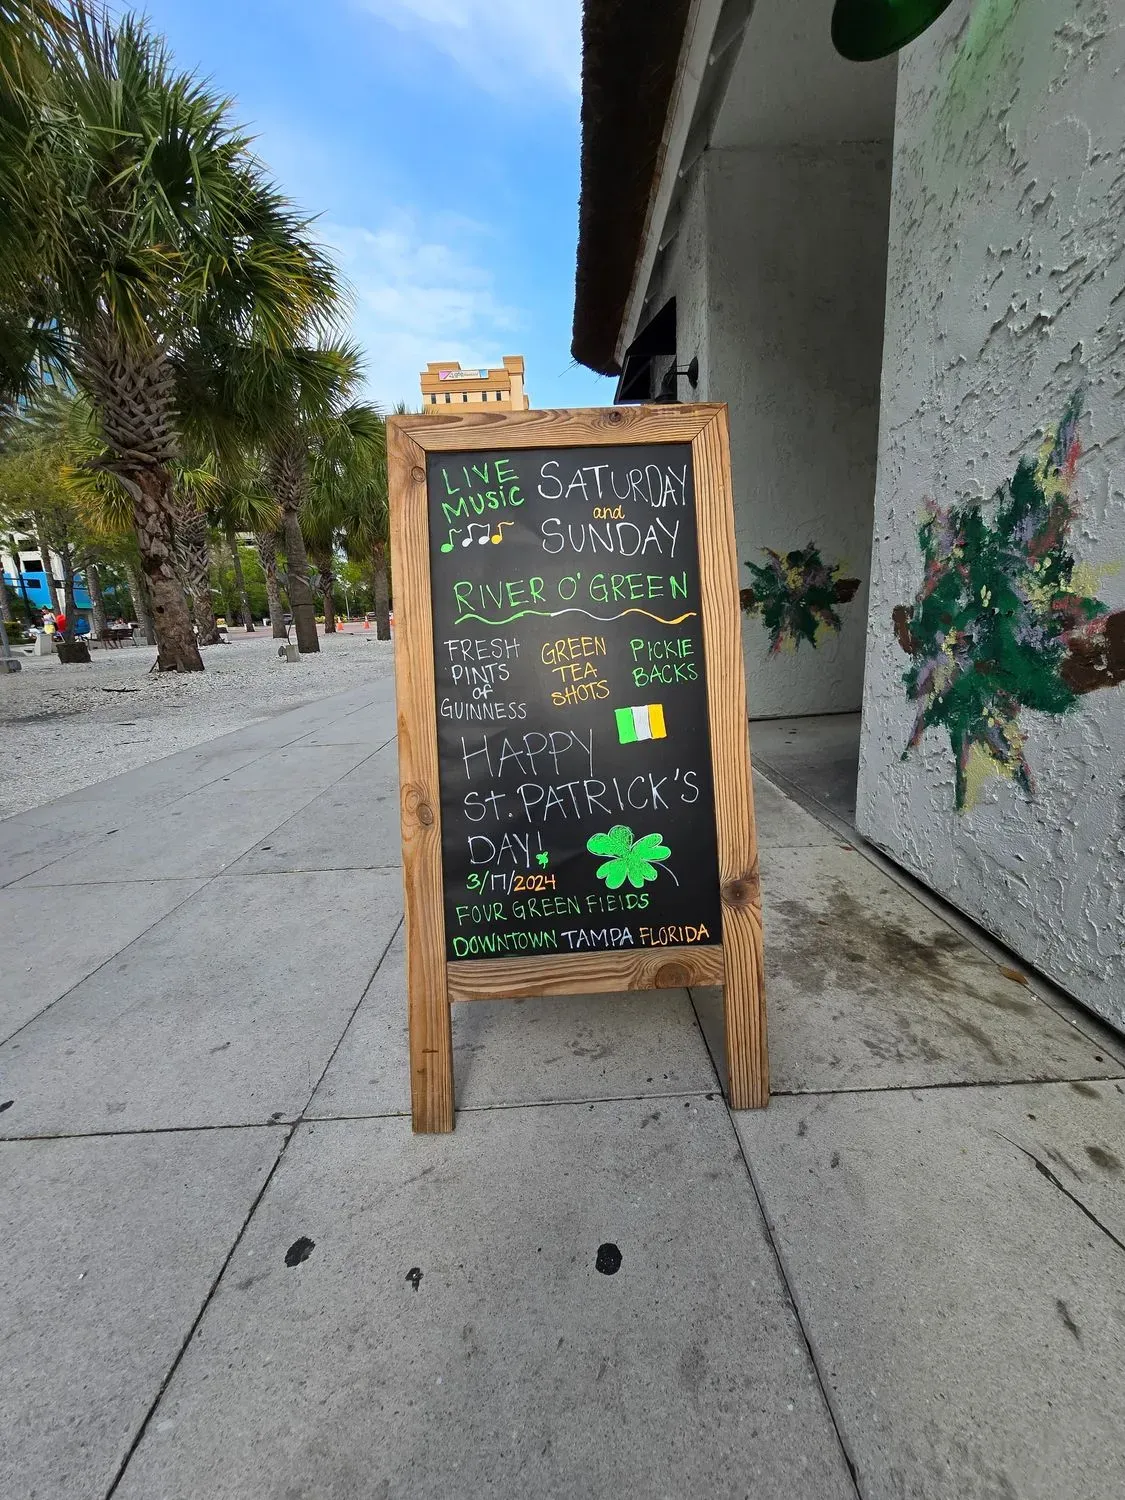 LIVE
MUSIC
SATURDAY
and
SUNDAY
RIVER O'GREEN
FRESH
PINTS
of
GUINNESS
GREEN
TEA
SHOTS
PICKIE
BACKS
HAPPY
St. PATRICK'S
DAY!
3/17/2024
FOUR GREEN FIElDS
DOWNTOWN TAMPA FLORIDA